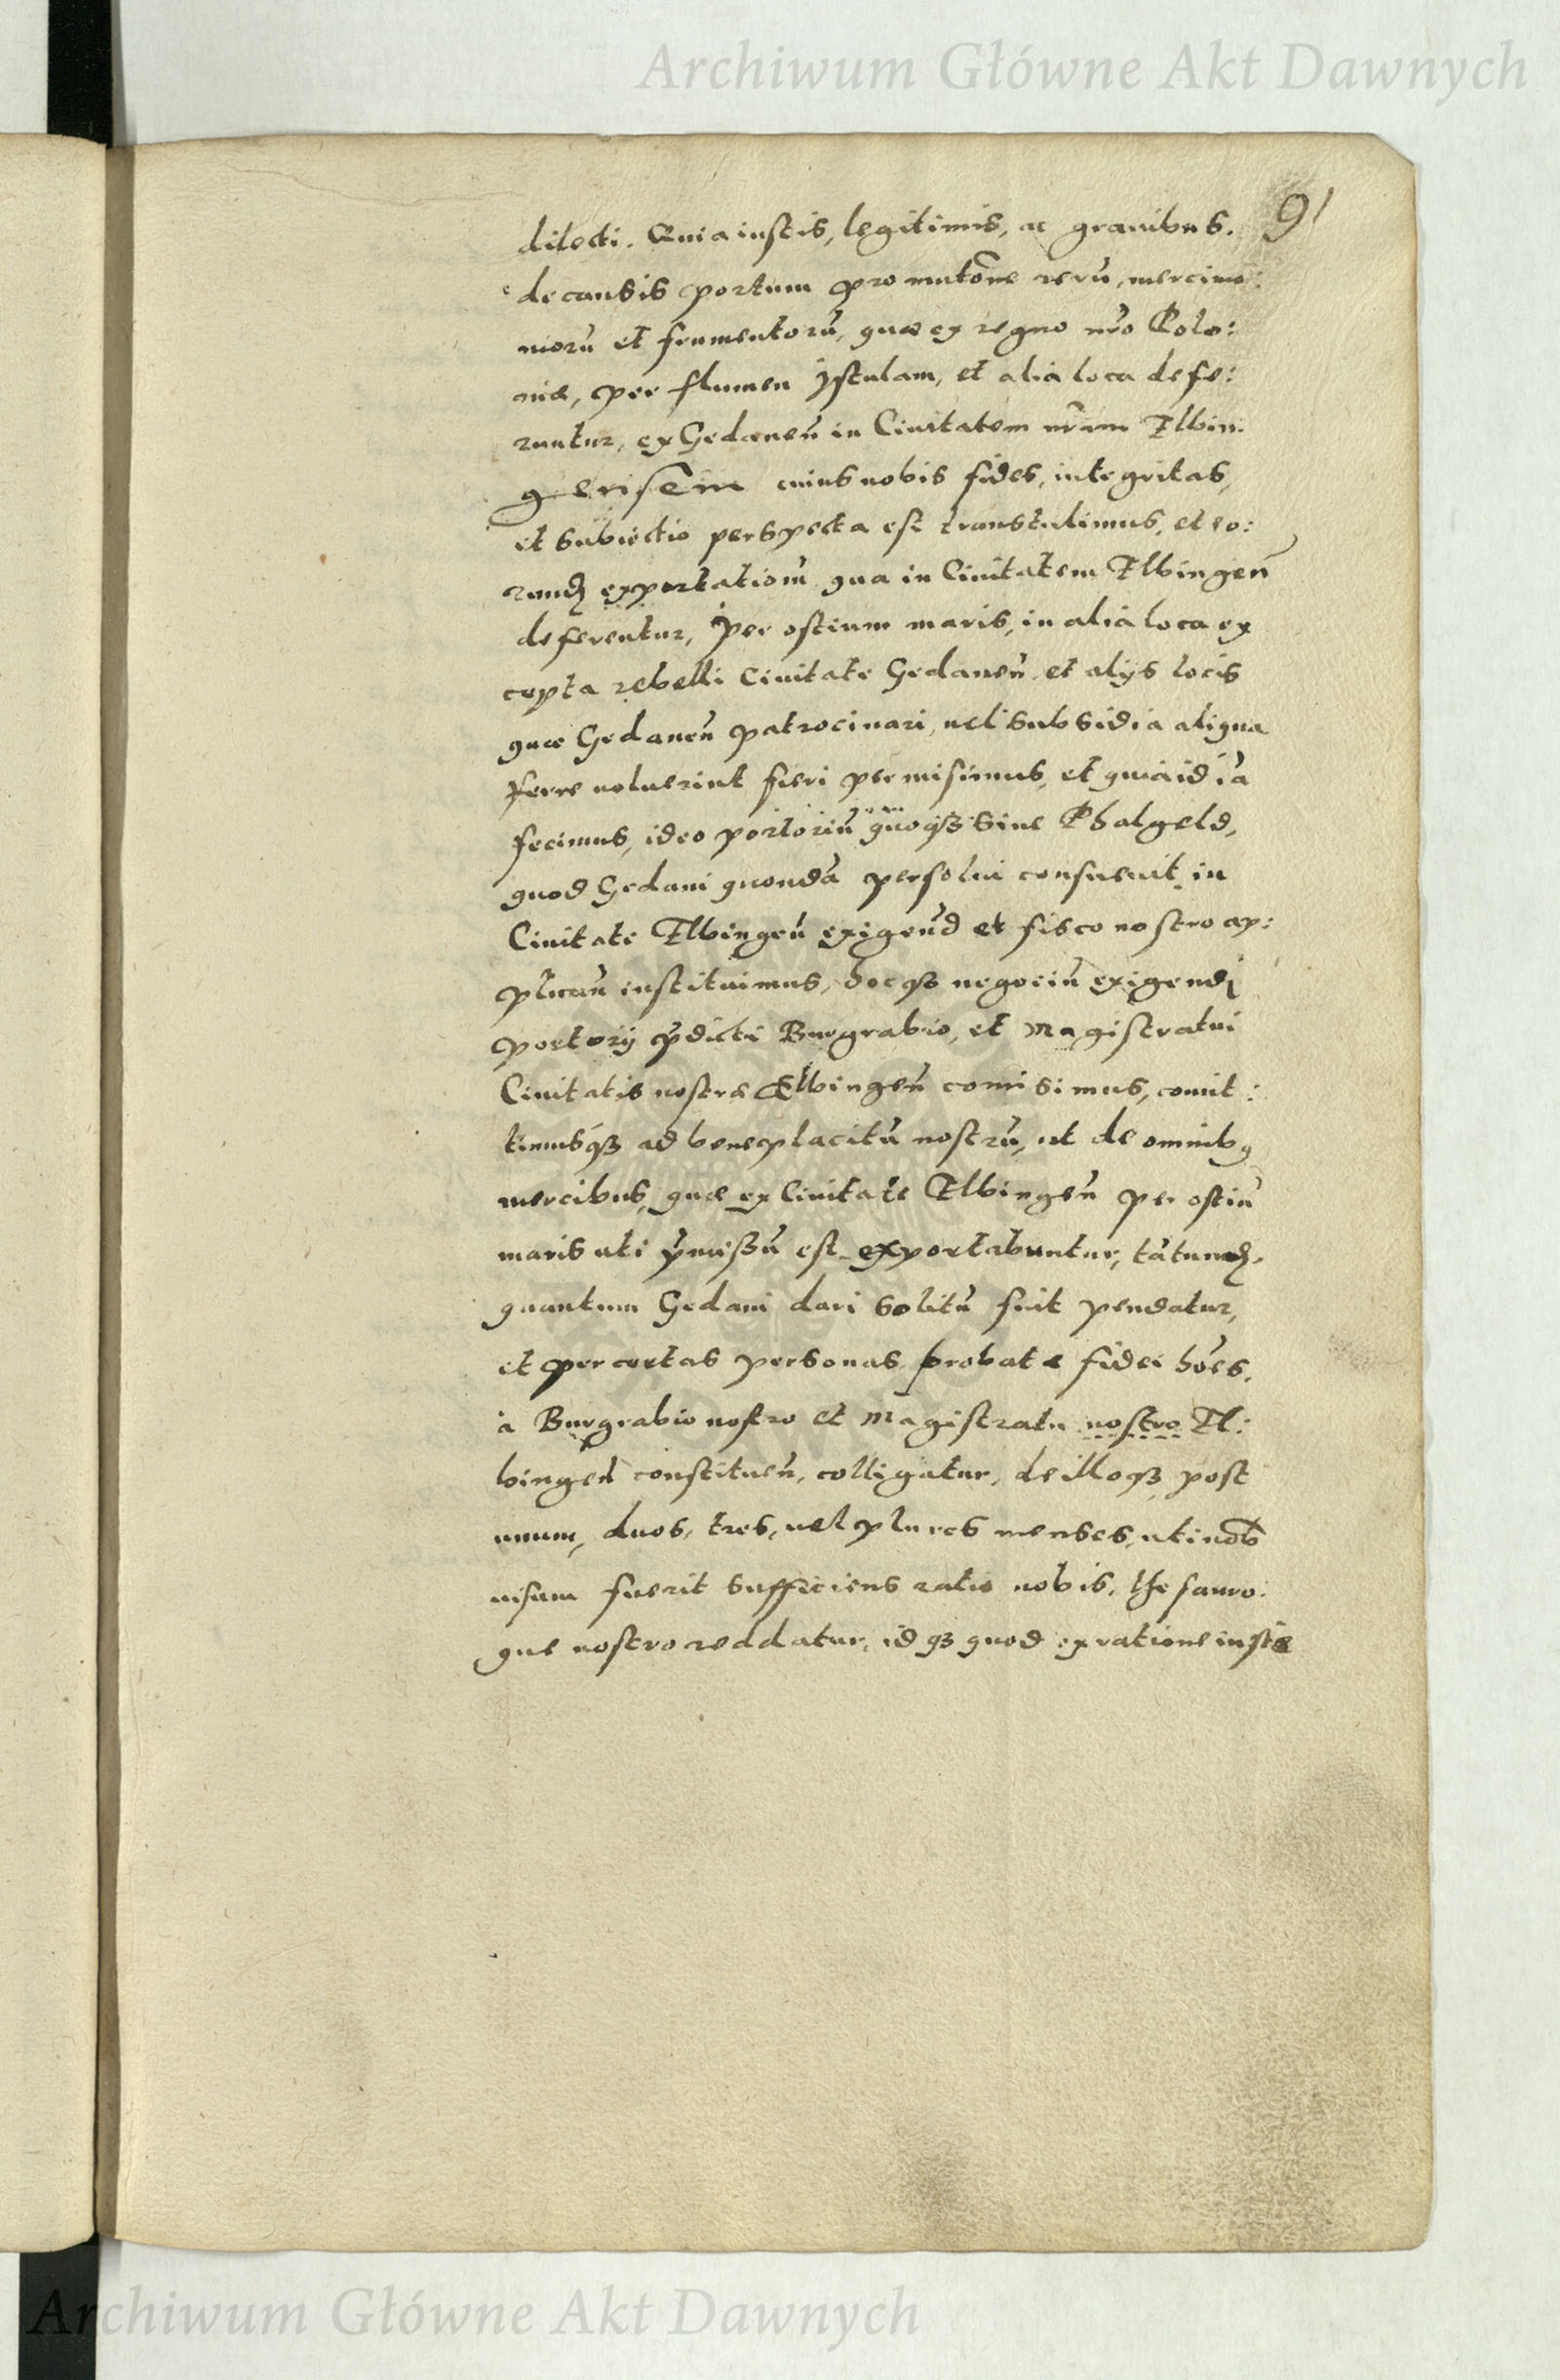 Archiwum Główne Akt Dawnych
91
dilecti. Quia iustis, legitimis, ac grauibus.
de causis portum pro mutõne rerũ, mercimo:
niorũ et frumentorũ, quae ex regno nr̃o Polo:
niæ, per flumen Istulam, et alia loca defe:
runtur, ex Gedaneñ in Ciuitatem nr̃am Elbin:
gensem cuius nobis fides, integritas,
et subiectio perspecta est transtulimus, et eo:
rundẽ exportationẽ qua in Ciuitatem Elbingeñ
deferentur, per ostium maris, in alia loca ex
cepta rebelli Ciuitate Gedaneñ, et alijs locis
quæ Gedaneñ patrocinari, uel subsidia aliqua
ferre uoluerint fieri permisimus, et quia id ia
fecimus, ideo portoriũ quoqȝ siue Phalgeld,
quod Gedani quondã persolui consueuit, in
Ciuitate Elbingeñ exigend̃ et fisco nostro ap:
plicañ instituimus, hocqȝ negociũ exigendi
portorij p̃dicti Burgrabio, et Magistratui
Ciuitatis nostræ Elbingeñ comisimus, comit:
timusqȝ ad beneplacitũ nostrũ, ut de omnibꝫ
mercibus, quæ ex Ciuitate Elbingeñ per ostiũ
maris uti p̃missũ est exportabuntur, tãtundẽ.
quantum Gedani dari solitũ fuit pendatur,
et per certas personas probatæ fidei hões,
à Burgrabio nostro et Magistratu nostro El:
bingeñ constitueñ, colligatur, de illoqȝ post
unum, duos, tres, uel plures menses, uti nob̃
uisum fuerit sufficiens ratio nobis, thesauro:
que nostro reddatur, idqȝ quod ex ratione iustæ
Archiwum Główne Akt Dawnych